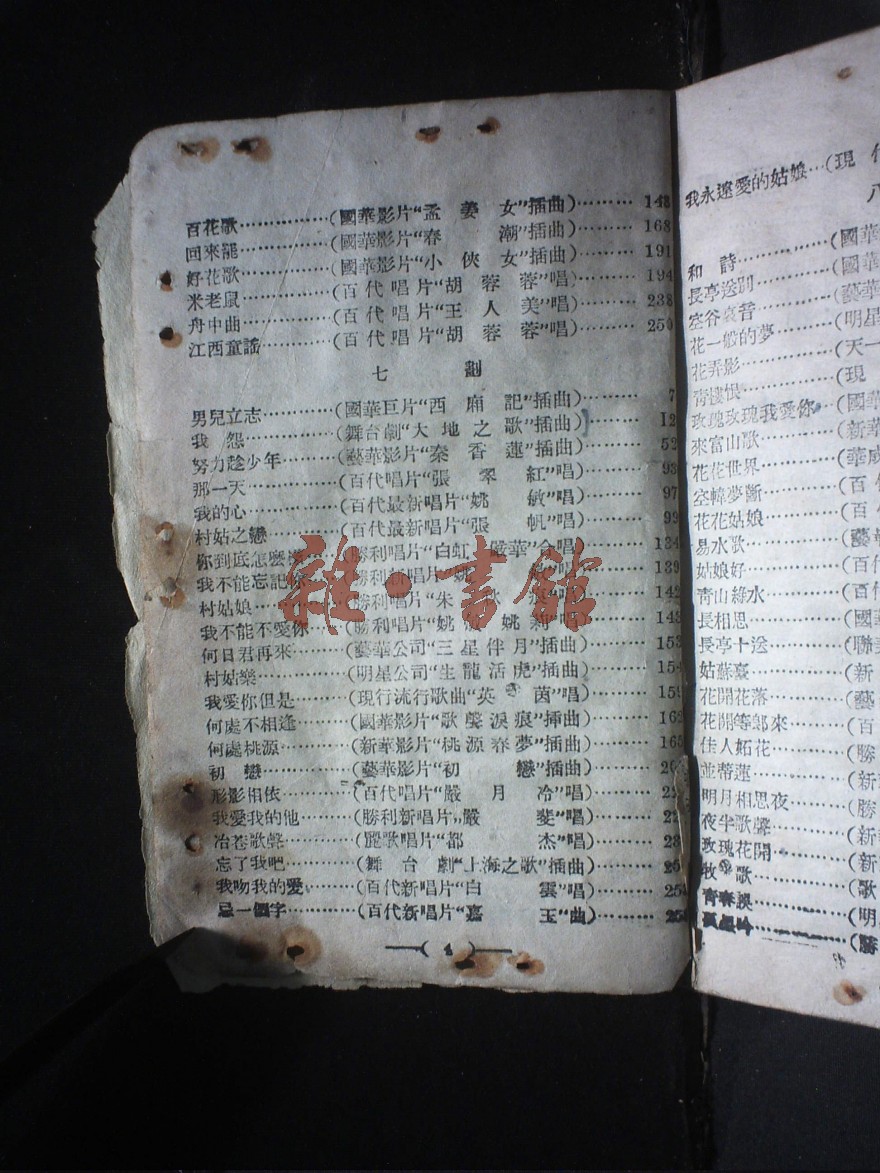 百花歌……………(國華影片“孟姜女”插曲)………148
回來罷……………(國華影片“春潮”插曲)………168
好花歌……………(國華影片“小俠女”插曲)………191
米老鼠……………(百代唱片“胡蓉蓉”唱)………194
舟中曲……………(百代唱片“王人美”唱)………238
江西童謠…………(百代唱片“胡蓉蓉”唱)………250
七劃
男兒立志…………(國華巨片“西廂記”插曲)………7
我怨………………(舞台劇“大地之歌”插曲)………12
努力趁少年………(藝華影片“秦香蓮”插曲)………52
那一天……………(百代唱片“張翠紅”唱)………93
我的心……………(百代最新唱片“姚敏”唱)………97
村姑之戀…………(百代最新唱片“張帆”唱)………99
你到底怎麼………(勝利唱片“白虹 嚴華”合唱)………134
我不能忘記你……(勝利新唱片“姚 唱)………139
村姑娘……………(勝利唱片“朱 唱)………142
我不能不愛你……(勝利唱片“姚 姚莉”唱)………143
何日君再來………(藝華公司“三星伴月”插曲)………153
村姑樂……………(明星公司“生龍活虎”插曲)………154
我愛你但是………(現行流行歌曲“英茵”唱)………15
何處不相逢………(國華影片“歌聲淚痕”揷曲)………162
何處桃源…………(新華影片“桃源春夢”插曲)………165
初戀………………(藝華影片“初戀”插曲)………20
形影相依…………(百代唱片“嚴月冷”唱)………22
我愛我的他………(勝利新唱片“嚴斐”唱)………22
冶巷歌聲…………(麗歌唱片“都杰”唱)………23
忘了我吧…………(舞台劇“上海之歌”插曲)………25
我吻我的愛………(百代新唱片“白雲”唱)………25
忌一個字…………(百代新唱片“嘉玉”曲)………25
(4)
我永遠愛的姑娘…(現代
八
和詩……………(國華
長亭送別…………(國華
空谷蘭音…………(藝華
花一般的夢………(明星
花弄影……………(天一
青樓恨……………(現
玫瑰玫瑰我愛你…(國華
來富山歌…………(新華
花花世界…………(華成
空幃夢斷…………(百代
花花姑娘…………(百代
易水歌……………(藝華
姑娘好……………(百代
靑山綠水…………(百代
長相思……………(國華
長亭十送…………(聯美
姑蘇臺……………(新
花開花落…………(藝
花開等郎來………(百
佳人妬花…………(勝
並蒂蓮……………(新
明月相思夜………(勝
夜半歌聲…………(新
玫瑰花開…………(新
牧歌………………(歌
青春誤……………(明
吟……………(勝
雜·書館